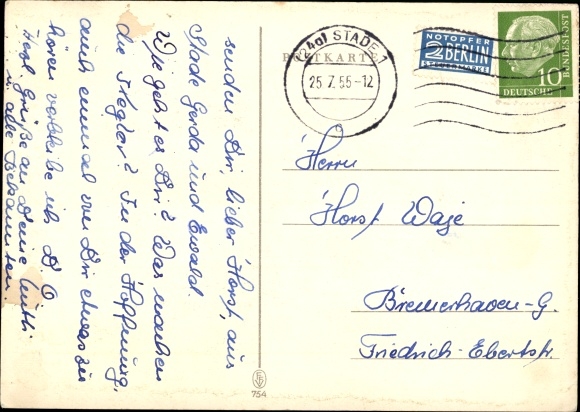 senden Dir, lieber Horst, aus
Stade Gerda und Ewald.
Wie geht es Dir? Was machen
die Treglar? In der Hoffnung,
auch einmal von Dir etwas zu
hören verbleibe ich D G
Herzl. Grüße an Deine Mutti
u. alle Bekannten.
(24a) STADE 1
25.7.55-12
POSTKARTE
NOTOPFER
2 BERLIN
STEUERMARKE
DEUTSCHE BUNDESPOST
10
Herrn
Horst Waje
Bremerhaven-G.
Friedrich-Ebertstr.
754